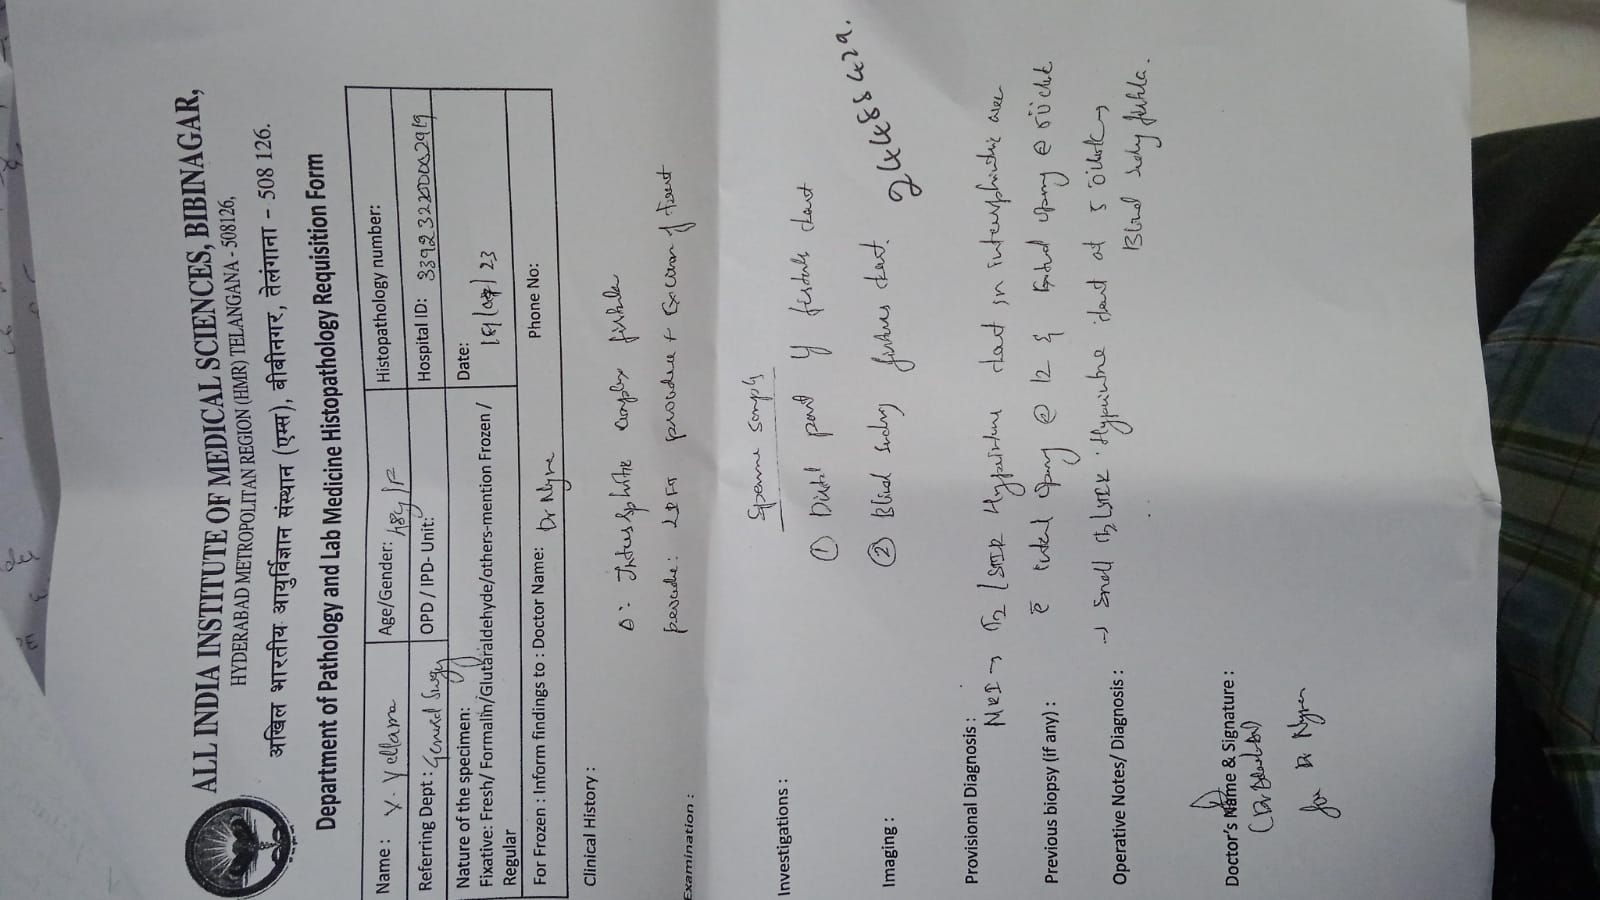 ALL INDIA INSTITUTE OF MEDICAL SCIENCES, BIBINAGAR,
HYDERABAD METROPOLITAN REGION (HMR) TELANGANA - 508126,
अखिल भारतीय आयुर्विज्ञान संस्थान (एम्स), बीबीनगर, तेलंगाना - 508 126.
Department of Pathology and Lab Medicine Histopathology Requisition Form
Name : Y. Yellama Age/Gender: 48y/F Histopathology number:
Referring Dept : General Surgery OPD / IPD- Unit: Hospital ID:
Nature of the specimen: Date:
Fixative: Fresh/ Formalin/Glutaraldehyde/others-mention Frozen /
Regular
For Frozen : Inform findings to : Doctor Name: Dr Nyna Phone No:
Clinical History :
D: Intersphinteric complex fistula
procedure: LIFT procedure + Excision of tract
Examination :
Specimen sample
Investigations :
① Distal part of fistula tract
Imaging :
② Blind ending fistulous tract.
24488429.
Provisional Diagnosis :
MRI → T2 / STIR Hyperintense tract in intersphinteric area
Previous biopsy (if any) :
c̄ internal opening @ 12 & external opening @ 5 o'clock
Operative Notes/ Diagnosis :
→ small T2, STIR Hyperintense tract at 5 o'clock →
Blind ending fistula.
Doctor's Name & Signature :
for Dr Nyna